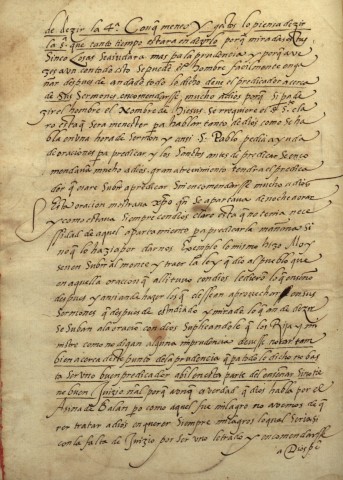 de dezir la 4ª. Con q̃ menes y gestos lo piensa dezir
la 5ª que tanto tiempo estara en dezirlo porq̃ miradas estas
cinco cosas se aiudara mas pa la prudencia y porq̃ a ve
zes aun con todo esto se puede el hombre facilmente enga
ñar despues de andado todo lo dicho deue el predicador acerca
de sus sermones encomendarsse mucho a dios porq̃ si pa de
zir el hombre el nombre de Diesus se requiere el sp̃. s. cla
ro esta q̃ sera menester pa hablar tanto de dios como se ha
bla en una hora de sermon y ansi S. Pablo pedia ayuda
de oraciones pa predicar y los santos antes de predicar se enco
mendauã mucho a dios gran atreuimiento tendra el predica
dor q̃ osare subir a predicar sin encomendarse mucho a dios
esta oracion mostraua xp̃o quãdo se apartaua de noche a orar
y como estaua siempre con dios claro esta q̃ no tenia nece
ssidad de aquel apartamiento pa predicar la mañana si
no q̃ lo hazia por darnos exemplo lo mismo hizo Moy
sen en subir al monte y traer la ley q̃ dio al pueblo que
en aquella oracion q̃ alli tuuo con dios le dieron lo q̃ enseño
despues y ansi an de hazer los q̃ dessean aprouechar con sus
sermones q̃ despues de estudiado y mirado lo q̃ an de dezir
se suban a la oracion con dios suplicandole q̃ los rija y en
mitre como no digan alguna imprudencia deuese notar tam
bien acerca deste punto de la prudencia q̃ pa todo lo dicho no bas
ta ser uno buen predicador abil en esta parte del enseñar si no tie
ne buen juizio nãl porq̃ aunq̃ es verdad q̃ dios hablo por el
asina de Balan po como aquel fue milagro no auemos de q̃
rer tratar a dios en querer siempre milagros lo qual seria si
con la falta de juizio por ser uno letrado y encomendarsse
a Dios